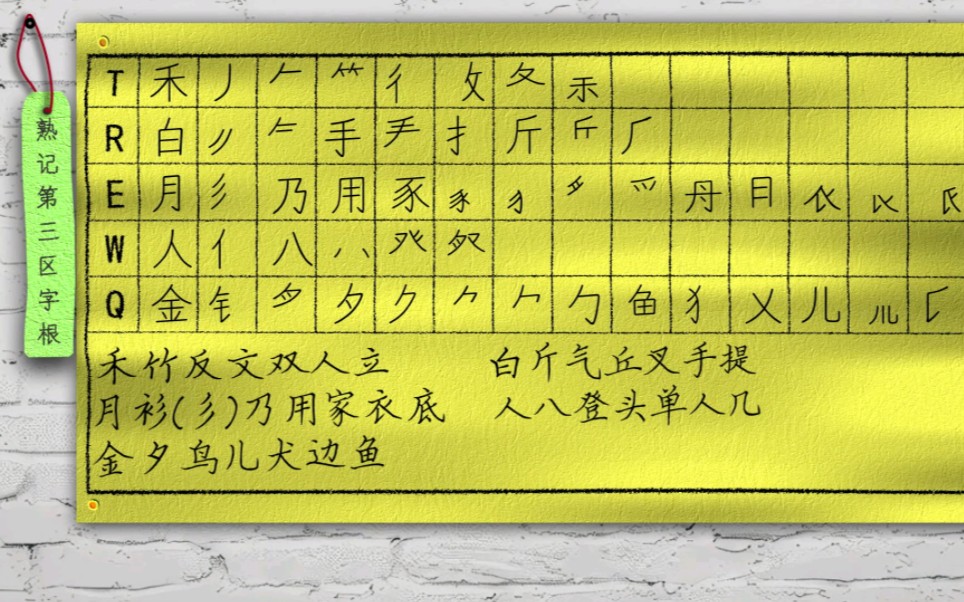 熟记第三区字根
T 禾 丿 𠂉 ⺮ 彳 攵 夂 禾
R 白 手 扌 斤 厂
E 月 彡 乃 用 豕 豸 爫 丹 目 衣
W 人 亻 八 癶
Q 金 钅 夕 ク 勹 勺 鱼 犭 乂 儿
禾竹反文双人立 白斤气丘叉手提
月衫(彡)乃用家衣底 人八登头单人几
金夕鸟儿犬边鱼